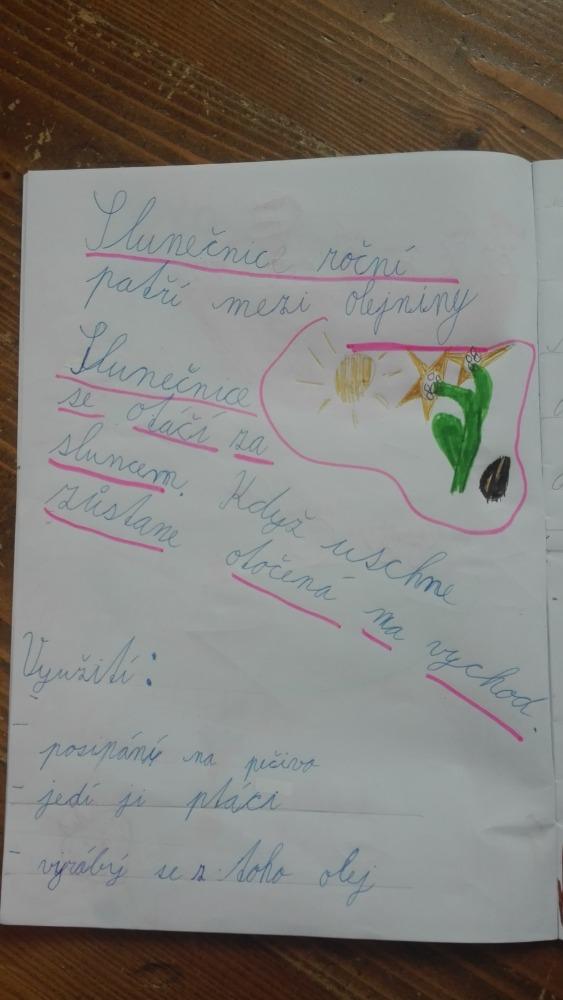 Slunečnice roční
patří mezi olejniny
Slunečnice
se otáčí za
sluncem. Když uschne
zůstane otočená na východ.
Využití:
- posipání na pečivo
- jedí ji ptáci
- vyrábý se z toho olej